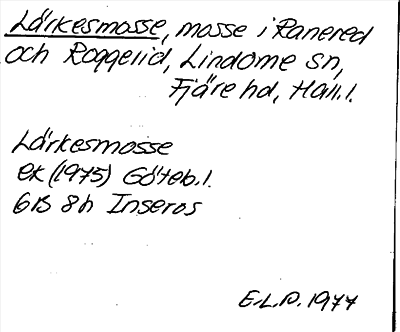 Lärkesmosse, mosse i Ranered
och Roggelid, Lindome sn,
Fjäre hd, Hall. l.
Lärkesmosse
ek (1975) Göteb. l.
6B 8h Inseros
E.L.P. 1977